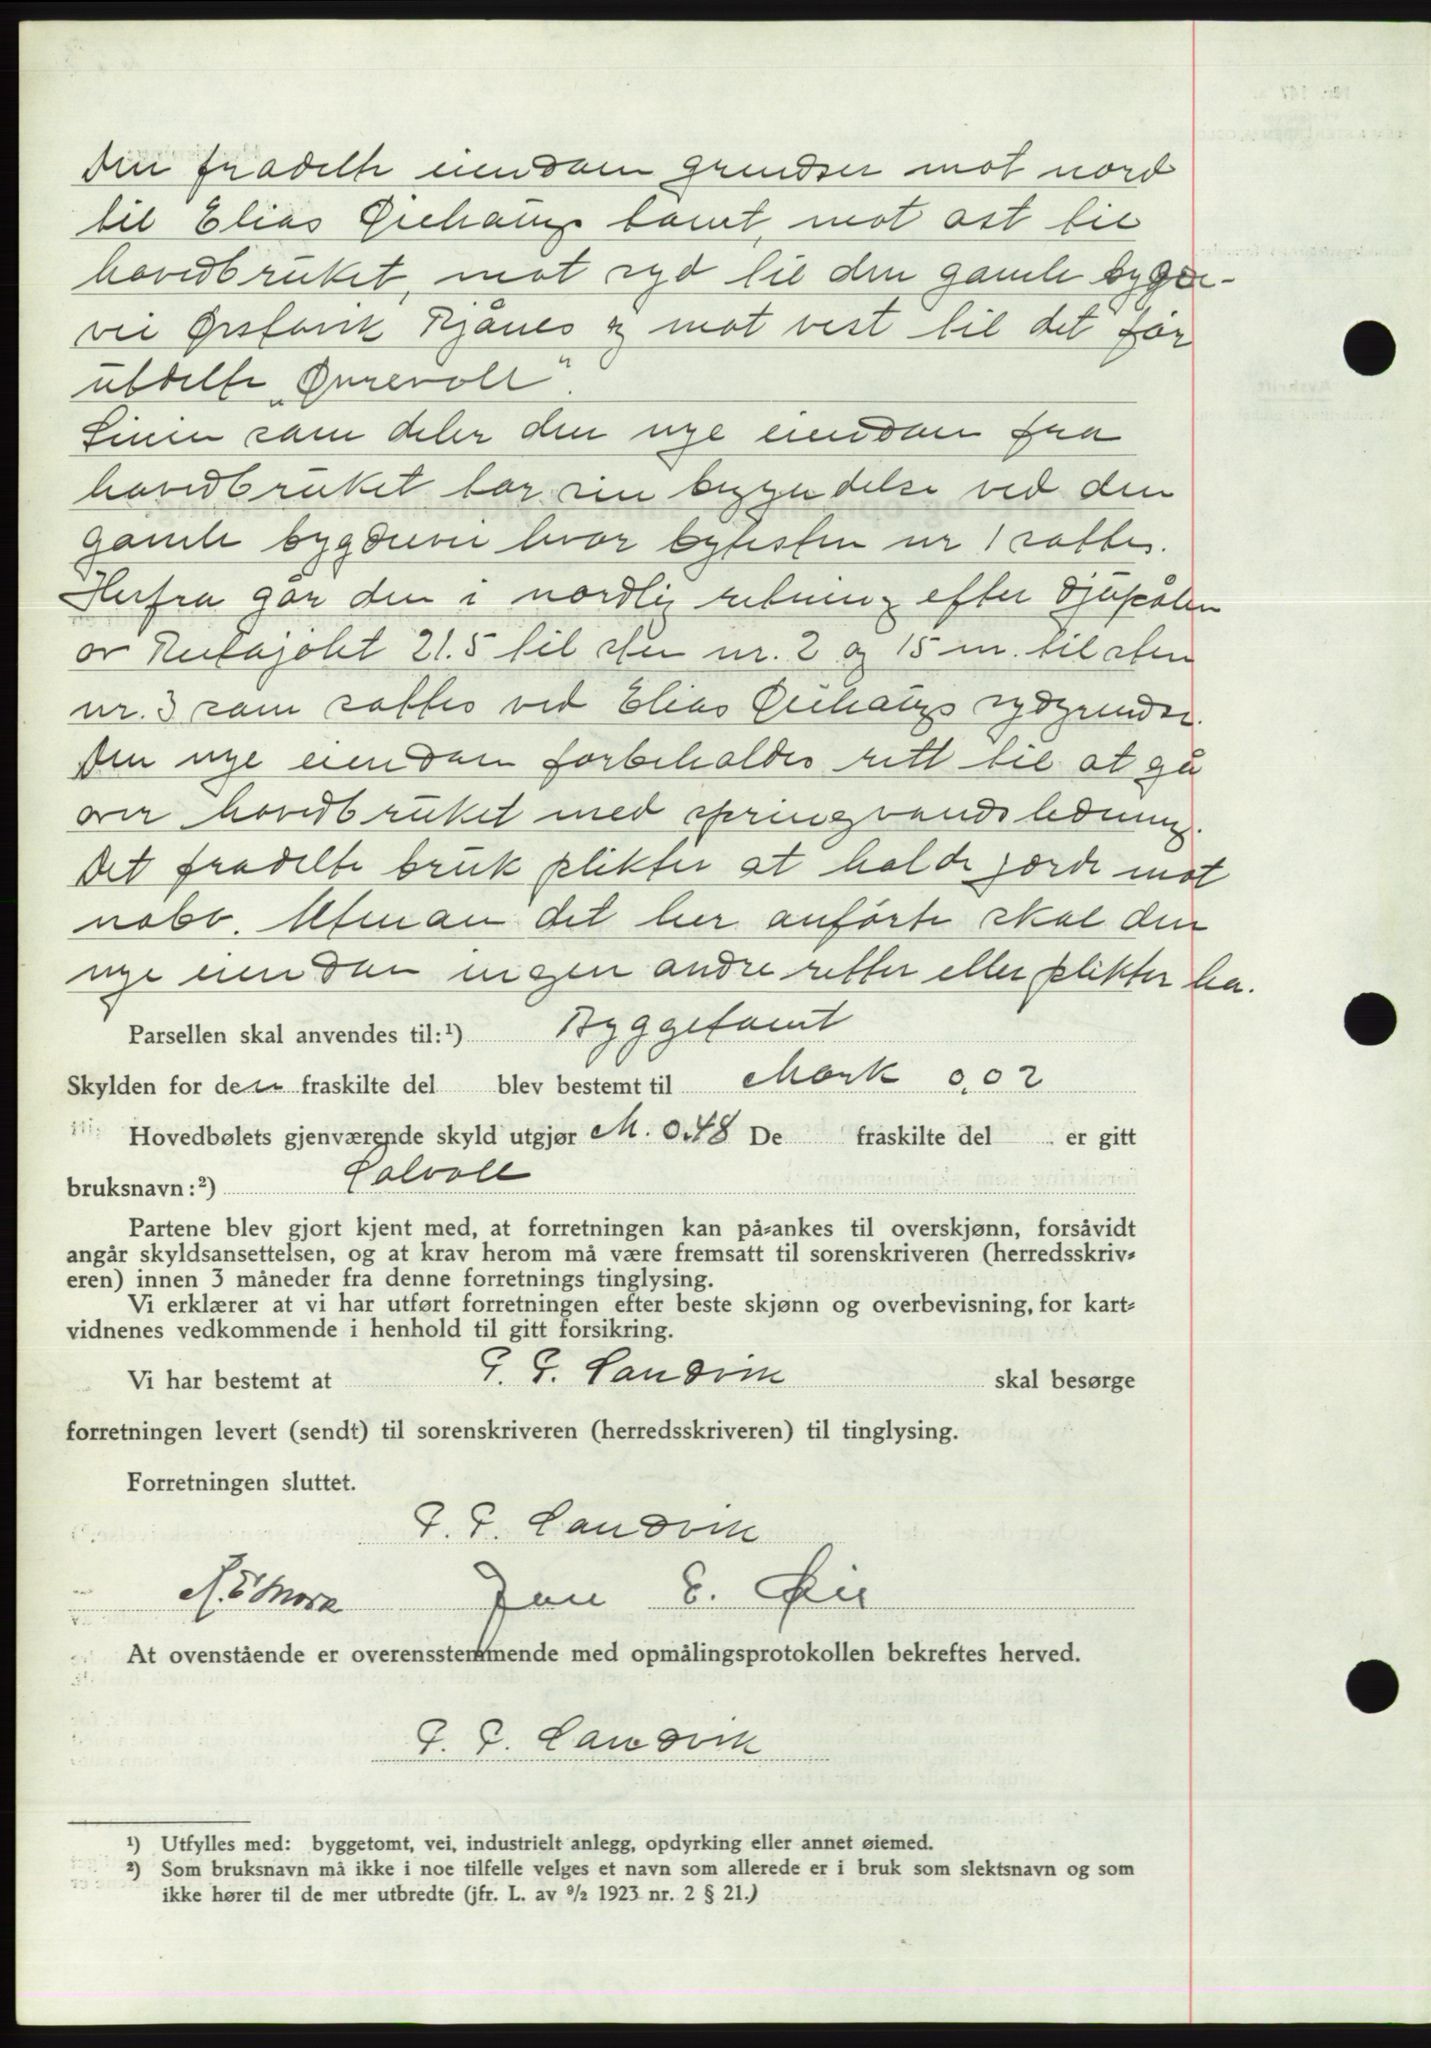 Den fradelte eiendom grendser mot nord
til Elias Øiehaugs tomt, mot ost til
hovedbruket, mot syd til den gamle bygde-
vei Ørstavik Rjånes og mot vest til det før
utdelte „Ønrevoll".
Linien som deler den nye eiendom fra
hovedbruket tar sin begyndelse ved den
gamle bygdevei hvor bytesten nr 1 sattes.
Herfra går den i nordlig retning efter djupålen
av 21.5 til sten nr. 2 og 15 m. til sten
nr. 3 som sattes ved Elias Øiehaugs sydgrendse.
Den nye eiendom forbeholdes rett til at gå
over hovedbruket med springvandsledning.
Det fradelte bruk plikter at holde jorde mot
nabo. Utenom det her anførte skal den
nye eiendom ingen andre retter eller plikter ha.
Parsellen skal anvendes til:¹) Byggetomt
Skylden for den fraskilte del blev bestemt til Mark 0,02
Hovedbølets gjenværende skyld utgjør M. 0.48 De fraskilte del er gitt
bruksnavn:²) Solvoll
Partene blev gjort kjent med, at forretningen kan på-ankes til overskjønn, forsåvidt
angår skyldsansettelsen, og at krav herom må være fremsatt til sorenskriveren (herredsskriv-
eren) innen 3 måneder fra denne forretnings tinglysing.
Vi erklærer at vi har utført forretningen efter beste skjønn og overbevisning, for kart-
vidnenes vedkommende i henhold til gitt forsikring.
Vi har bestemt at P. P. Sandvik skal besørge
forretningen levert (sendt) til sorenskriveren (herredsskriveren) til tinglysing.
Forretningen sluttet.
P. P. Sandvik
A. E Mork Jon E. Øie
At ovenstående er overensstemmende med opmålingsprotokollen bekreftes herved.
P. P. Sandvik
¹) Utfylles med: byggetomt, vei, industrielt anlegg, opdyrking eller annet øiemed.
²) Som bruksnavn må ikke i noe tilfelle velges et navn som allerede er i bruk som slektsnavn og som
ikke hører til de mer utbredte (jfr. L. av 9/2 1923 nr. 2 § 21.)